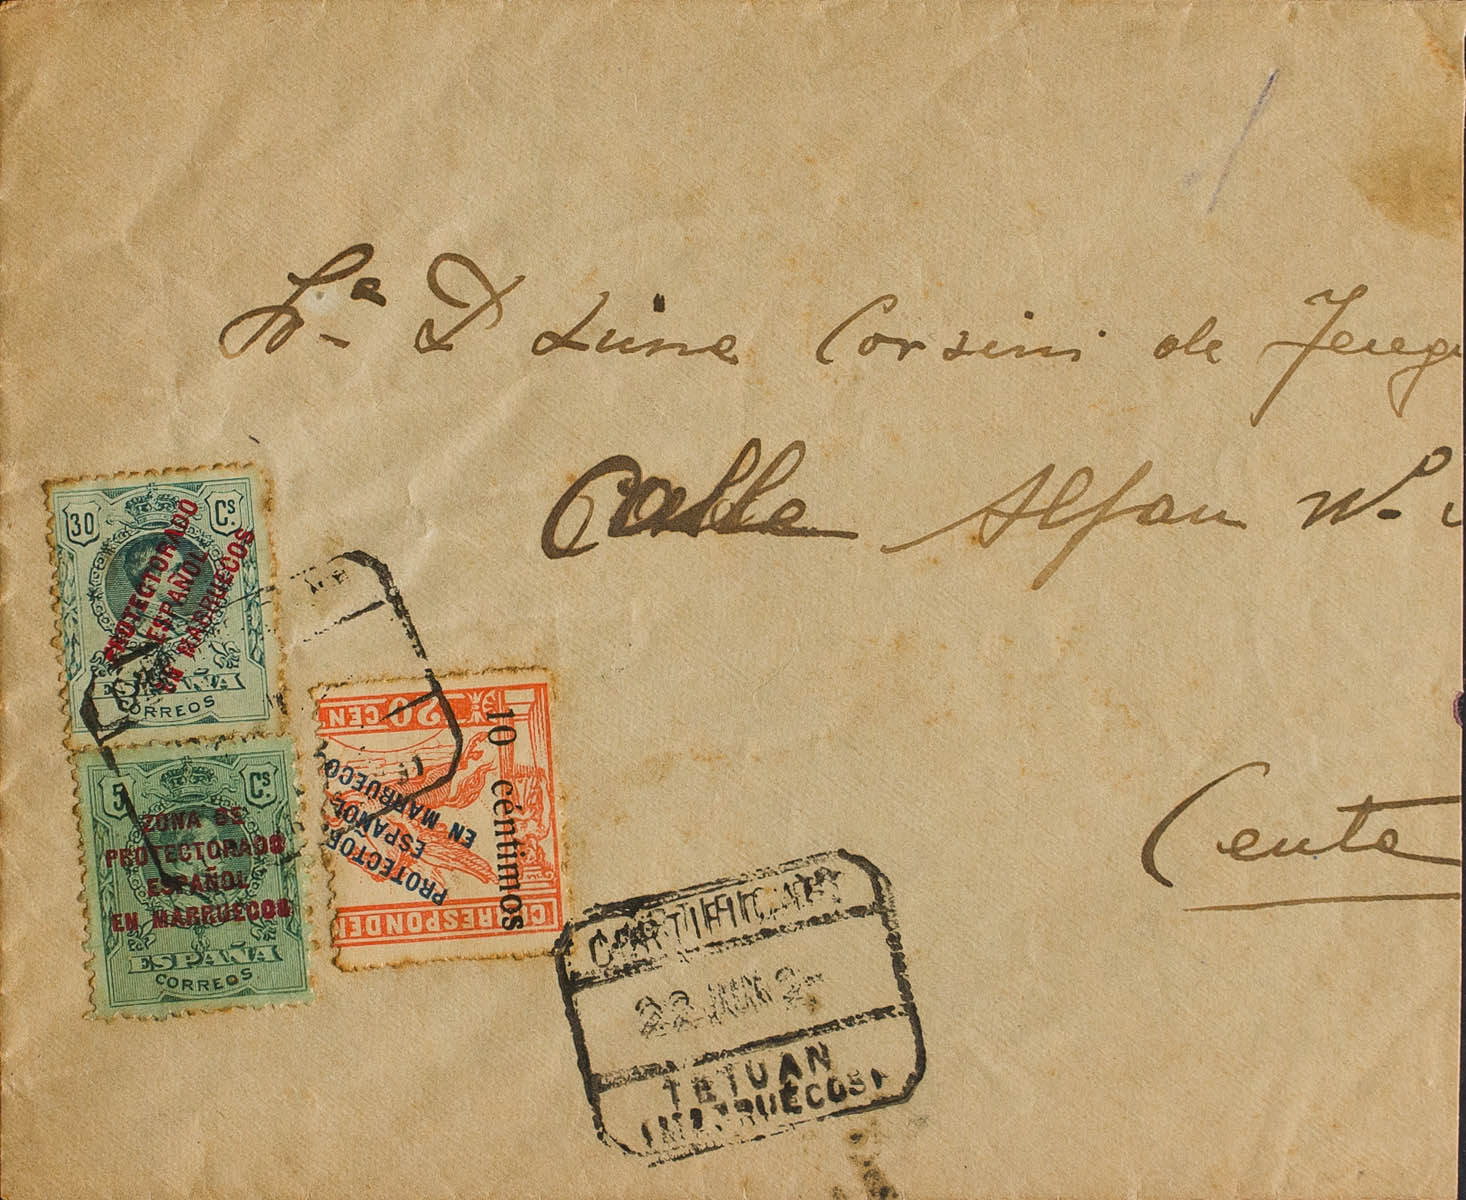 Sra. D Luna Corsini de
Calle Alfau Nº
Ceuta
30 Cs.
PROTECTORADO
ESPAÑOL
EN MARRUECOS
ESPAÑA
CORREOS
5 Cs.
ZONA DE
PROTECTORADO
ESPAÑOL
EN MARRUECOS
ESPAÑA
CORREOS
20 CEN
10 céntimos
PROTECTOR
ESPAÑOL
EN MARRUECO
CORRESPONDEN
CERTIFICADO
22
TETUAN
(MARRUECOS)